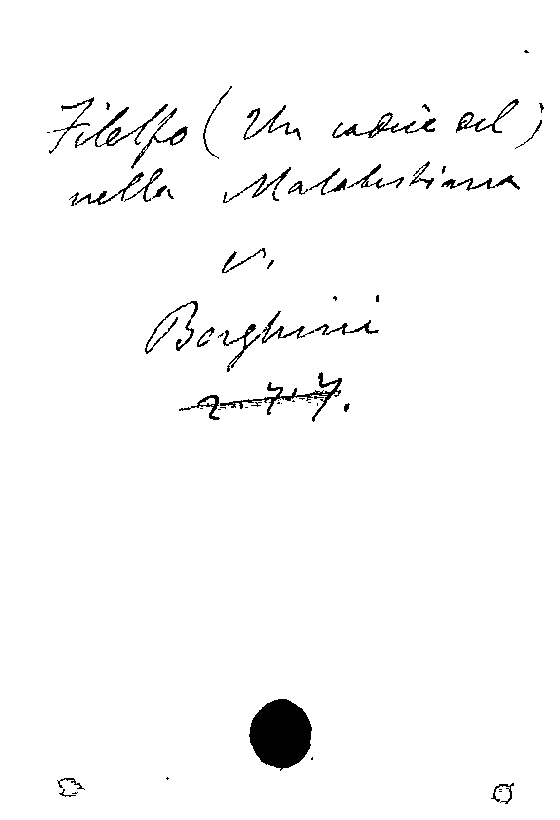 Filelfo (Un codice del)
nella Malatestiana
v.
Borghini
2.7.7.